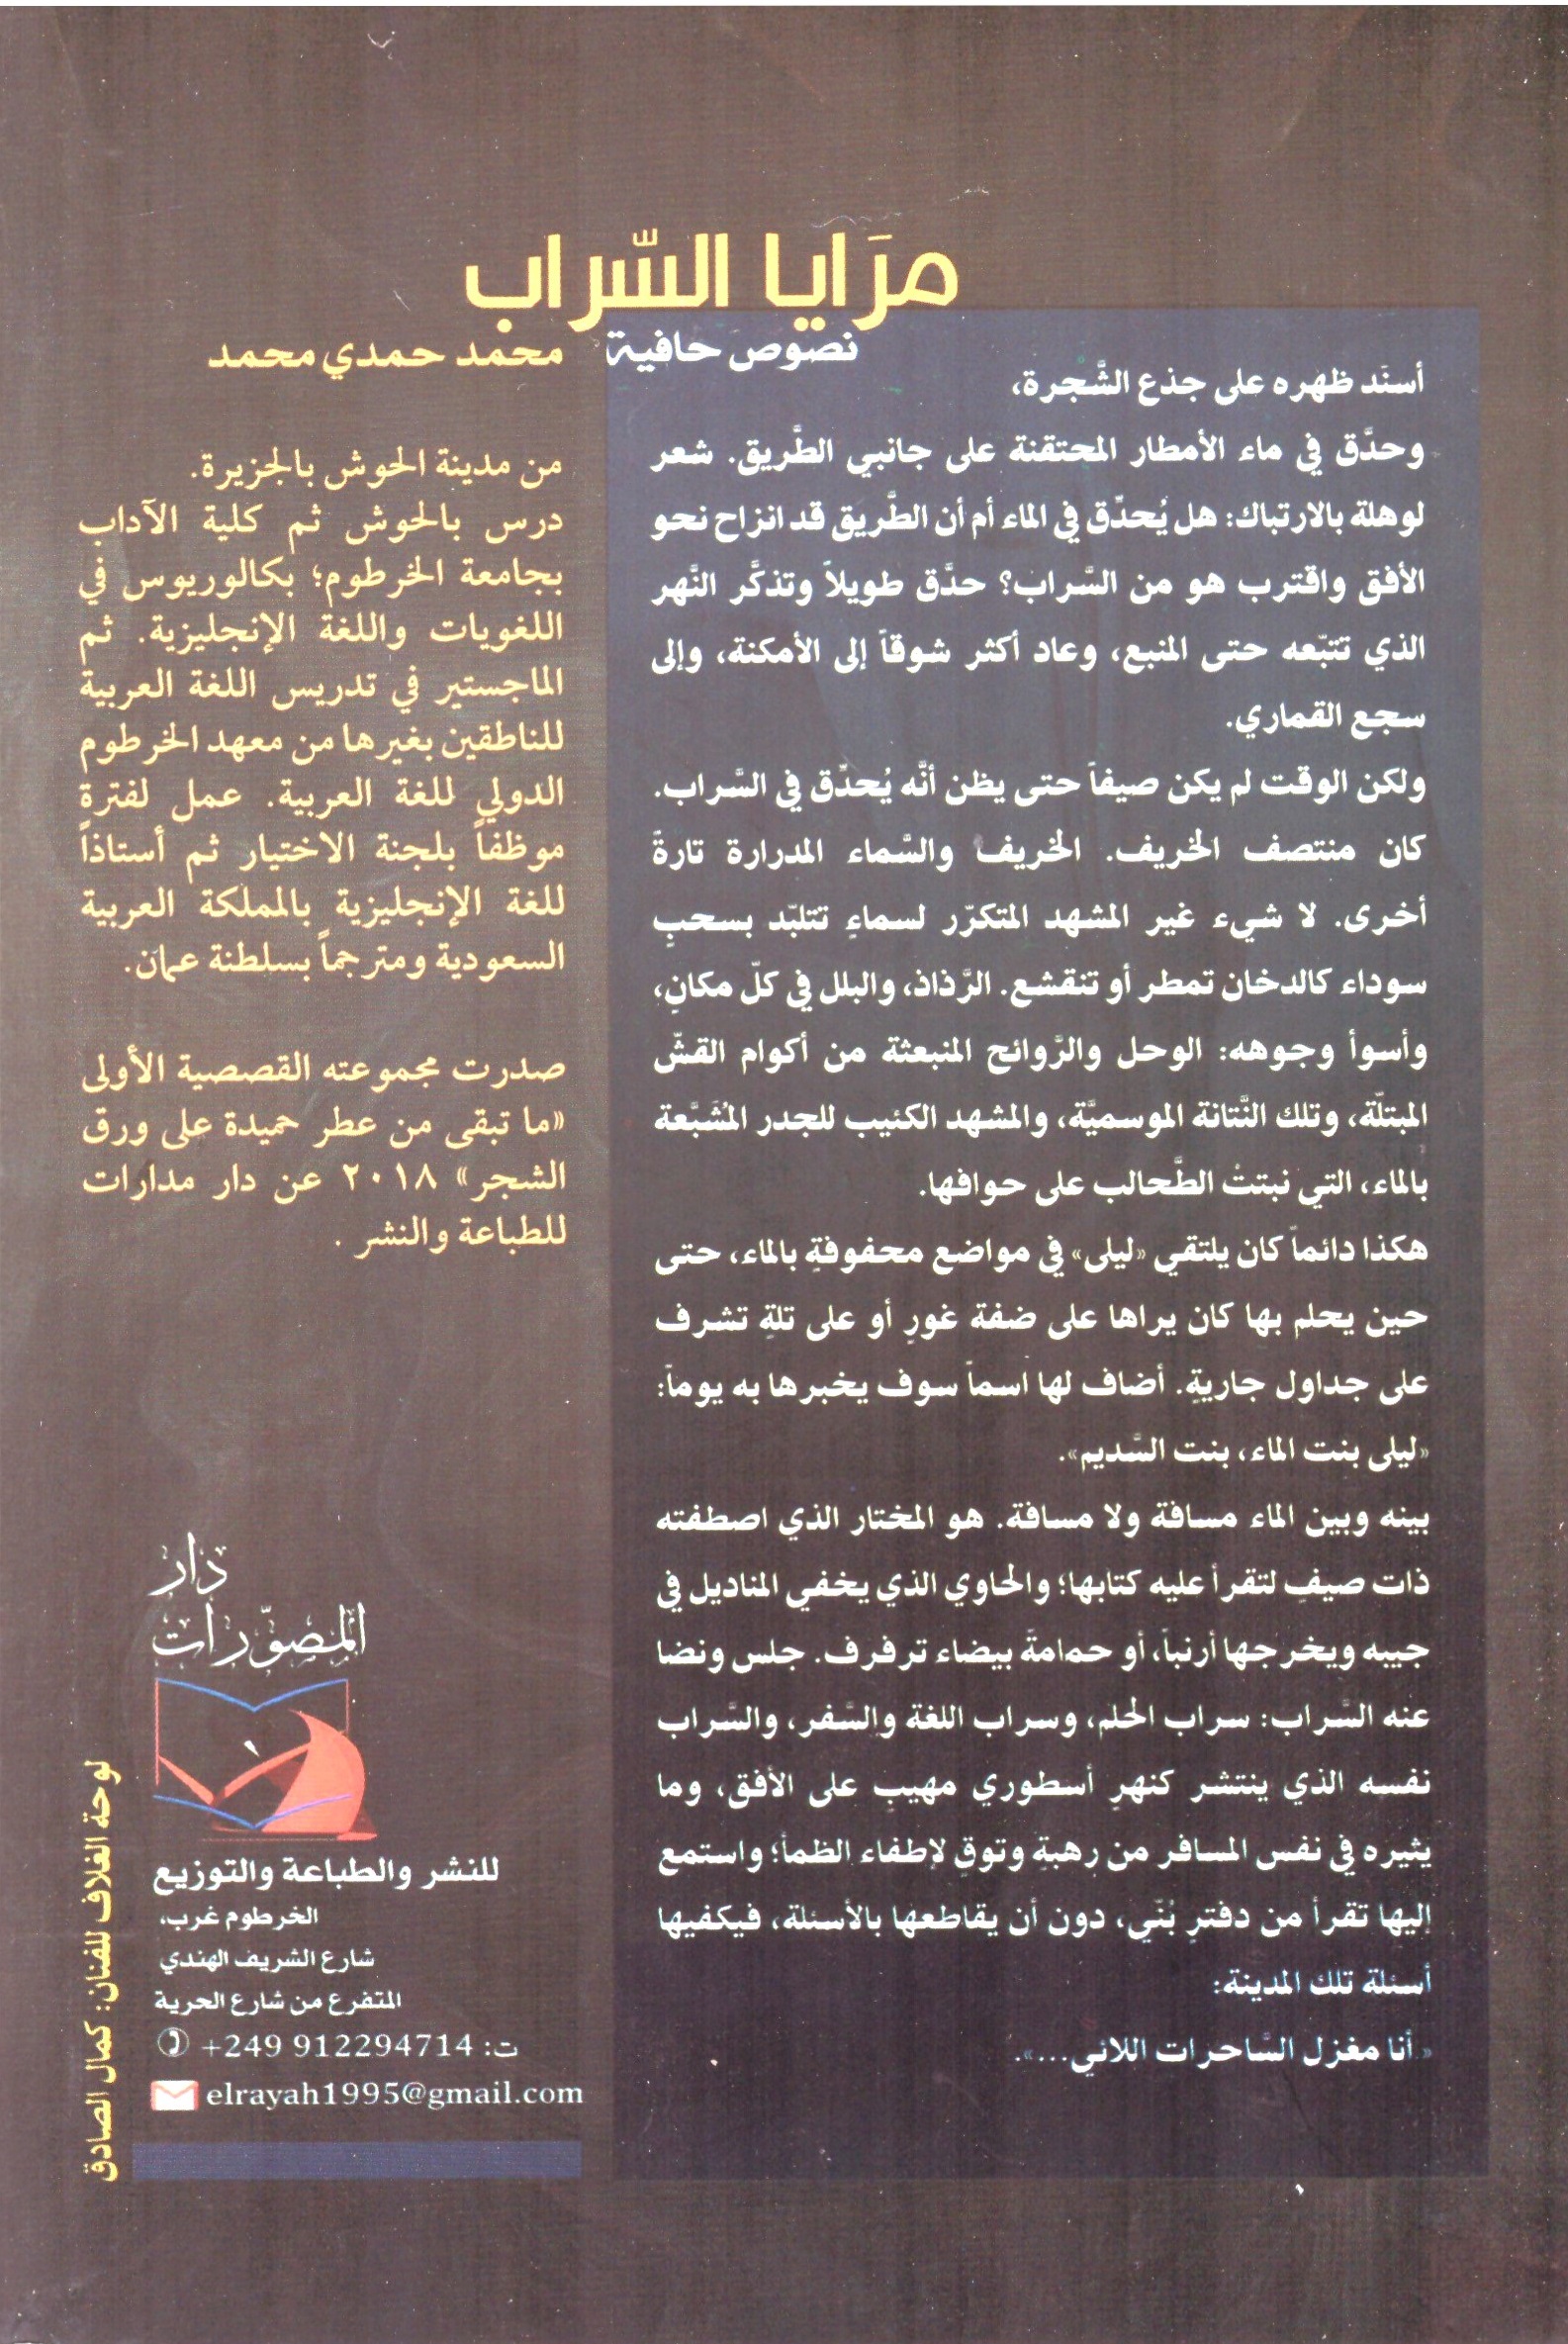 مرَايا السّراب
نصوص حافية
أسنَد ظهره على جذع الشَّجرة،
وحدَّق في ماء الأمطار المحتقنة على جانبي الطَّريق. شعر
لوهلة بالارتباك: هل يُحدِّق في الماء أم أن الطَّريق قد انزاح نحو
الأفق واقترب هو من السَّراب؟ حدَّق طويلاً وتذكَّر النَّهر
الذي تتبّعه حتى المنبع، وعاد أكثر شوقاً إلى الأمكنة، وإلى
سجع القماري.
ولكن الوقت لم يكن صيفاً حتى يظن أنَّه يُحدِّق في السَّراب.
كان منتصف الخريف. الخريف والسَّماء المدرارة تارةً
أخرى. لا شيء غير المشهد المتكرّر لسماءٍ تتلبّد بسحبٍ
سوداء كالدخان تمطر أو تنقشع. الرَّذاذ، والبلل في كلّ مكانٍ،
وأسوأ وجوهه: الوحل والرَّوائح المنبعثة من أكوام القشّ
المبتلّة، وتلك النَّتانة الموسميَّة، والمشهد الكئيب للجدر المُشَبَّعة
بالماء، التي نبتتْ الطَّحالب على حوافها.
هكذا دائماً كان يلتقي «ليلى» في مواضع محفوفةٍ بالماء، حتى
حين يحلم بها كان يراها على ضفة غورٍ أو على تلةٍ تشرف
على جداول جاريةٍ. أضاف لها اسماً سوف يخبرها به يوماً:
«ليلى بنت الماء، بنت السَّديم».
بينه وبين الماء مسافة ولا مسافة. هو المختار الذي اصطفته
ذات صيفٍ لتقرأ عليه كتابها؛ والحاوي الذي يخفي المناديل في
جيبه ويخرجها أرنباً، أو حمامةً بيضاء ترفرف. جلس ونضا
عنه السَّراب: سراب الحلم، وسراب اللغة والسَّفر، والسَّراب
نفسه الذي ينتشر كنهرٍ أسطوري مهيبٍ على الأفق، وما
يثيره في نفس المسافر من رهبةٍ وتوقٍ لإطفاء الظمأ؛ واستمع
إليها تقرأ من دفترٍ بُنّي، دون أن يقاطعها بالأسئلة، فيكفيها
أسئلة تلك المدينة:
«أنا مغزل السَّاحرات اللائي...».
محمد حمدي محمد
من مدينة الحوش بالجزيرة.
درس بالحوش ثم كلية الآداب
بجامعة الخرطوم؛ بكالوريوس في
اللغويات واللغة الإنجليزية. ثم
الماجستير في تدريس اللغة العربية
للناطقين بغيرها من معهد الخرطوم
الدولي للغة العربية. عمل لفترة
موظفاً بلجنة الاختيار ثم أستاذاً
للغة الإنجليزية بالمملكة العربية
السعودية ومترجماً بسلطنة عمان.
صدرت مجموعته القصصية الأولى
«ما تبقى من عطر حميدة على ورق
الشجر» ٢٠١٨ عن دار مدارات
للطباعة والنشر .
دار
المصوّرات
للنشر والطباعة والتوزيع
الخرطوم غرب،
شارع الشريف الهندي
المتفرع من شارع الحرية
ت: 912294714 249+
elrayah1995@gmail.com
لوحة الغلاف للفنان: كمال الصادق